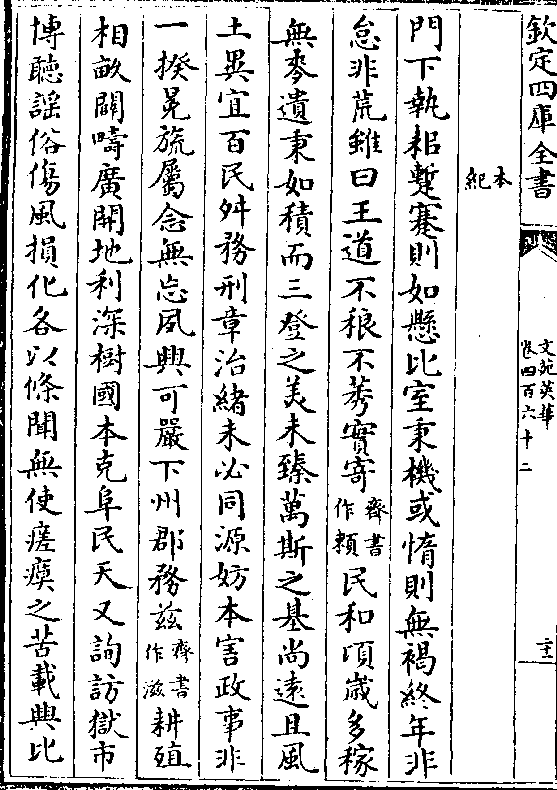 欽定四庫全書
文苑英華
卷四百六十二
二十一
本
紀
門下執耜蹔蹇則如懸比室秉機或惰則無褐終年非
怠非荒雖曰王道不稂不莠實寄齊書作賴民和頃歲多稼
無爽遺秉如積而三登之美未臻萬斯之基尚遠且風
土異宜百民舛務刑章治緒未必同源妨本害政事非
一揆冕旒屬念無忘夙興可嚴下州郡務兹齊書作滋耕殖
相畝闢疇廣開地利深樹國本克阜民天又詢訪獄市
博聽謡俗傷風損化各以條聞無使瘥瘼之苦載興比